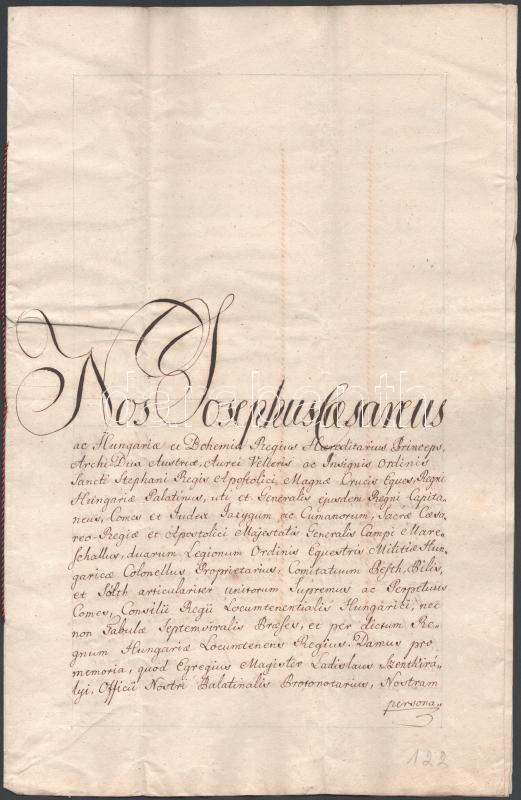 Nos Josephus Cæsareus
ac Hungariæ et Bohemiæ Regius Hereditarius Princeps,
Archi-Dux Austriæ, Aurei Velleris ac Insignis Ordinis
Sancti Stephani Regis Apostolici Magnæ Crucis Eques, Regni
Hungariæ Palatinus, uti et Generalis ejusdem Regni Capita-
neus, Comes et Judex Jazygum ac Cumanorum, Sacræ Cæsa-
reo-Regiæ et Apostolici Majestatis Generalis Campi Mare-
schallus, duarum Legionum Ordinis Equestris Militiæ Hun-
garicæ Colonellus Proprietarius, Comitatuum Pesth, Pilis,
et Solth articulariter unitorum Supremus ac Perpetuus
Comes, Consilii Regii Locumtenentialis Hungarici, nec
non Tabulæ Septemviralis Præses, et per dictum Re-
gnum Hungariæ Locumtenens Regius. Damus pro
memoria, quod Egregius Magister Ladislaus Szentkirá-
lyi, Officii Nostri Palatinalis Protonotarius, Nostram
persona-
122